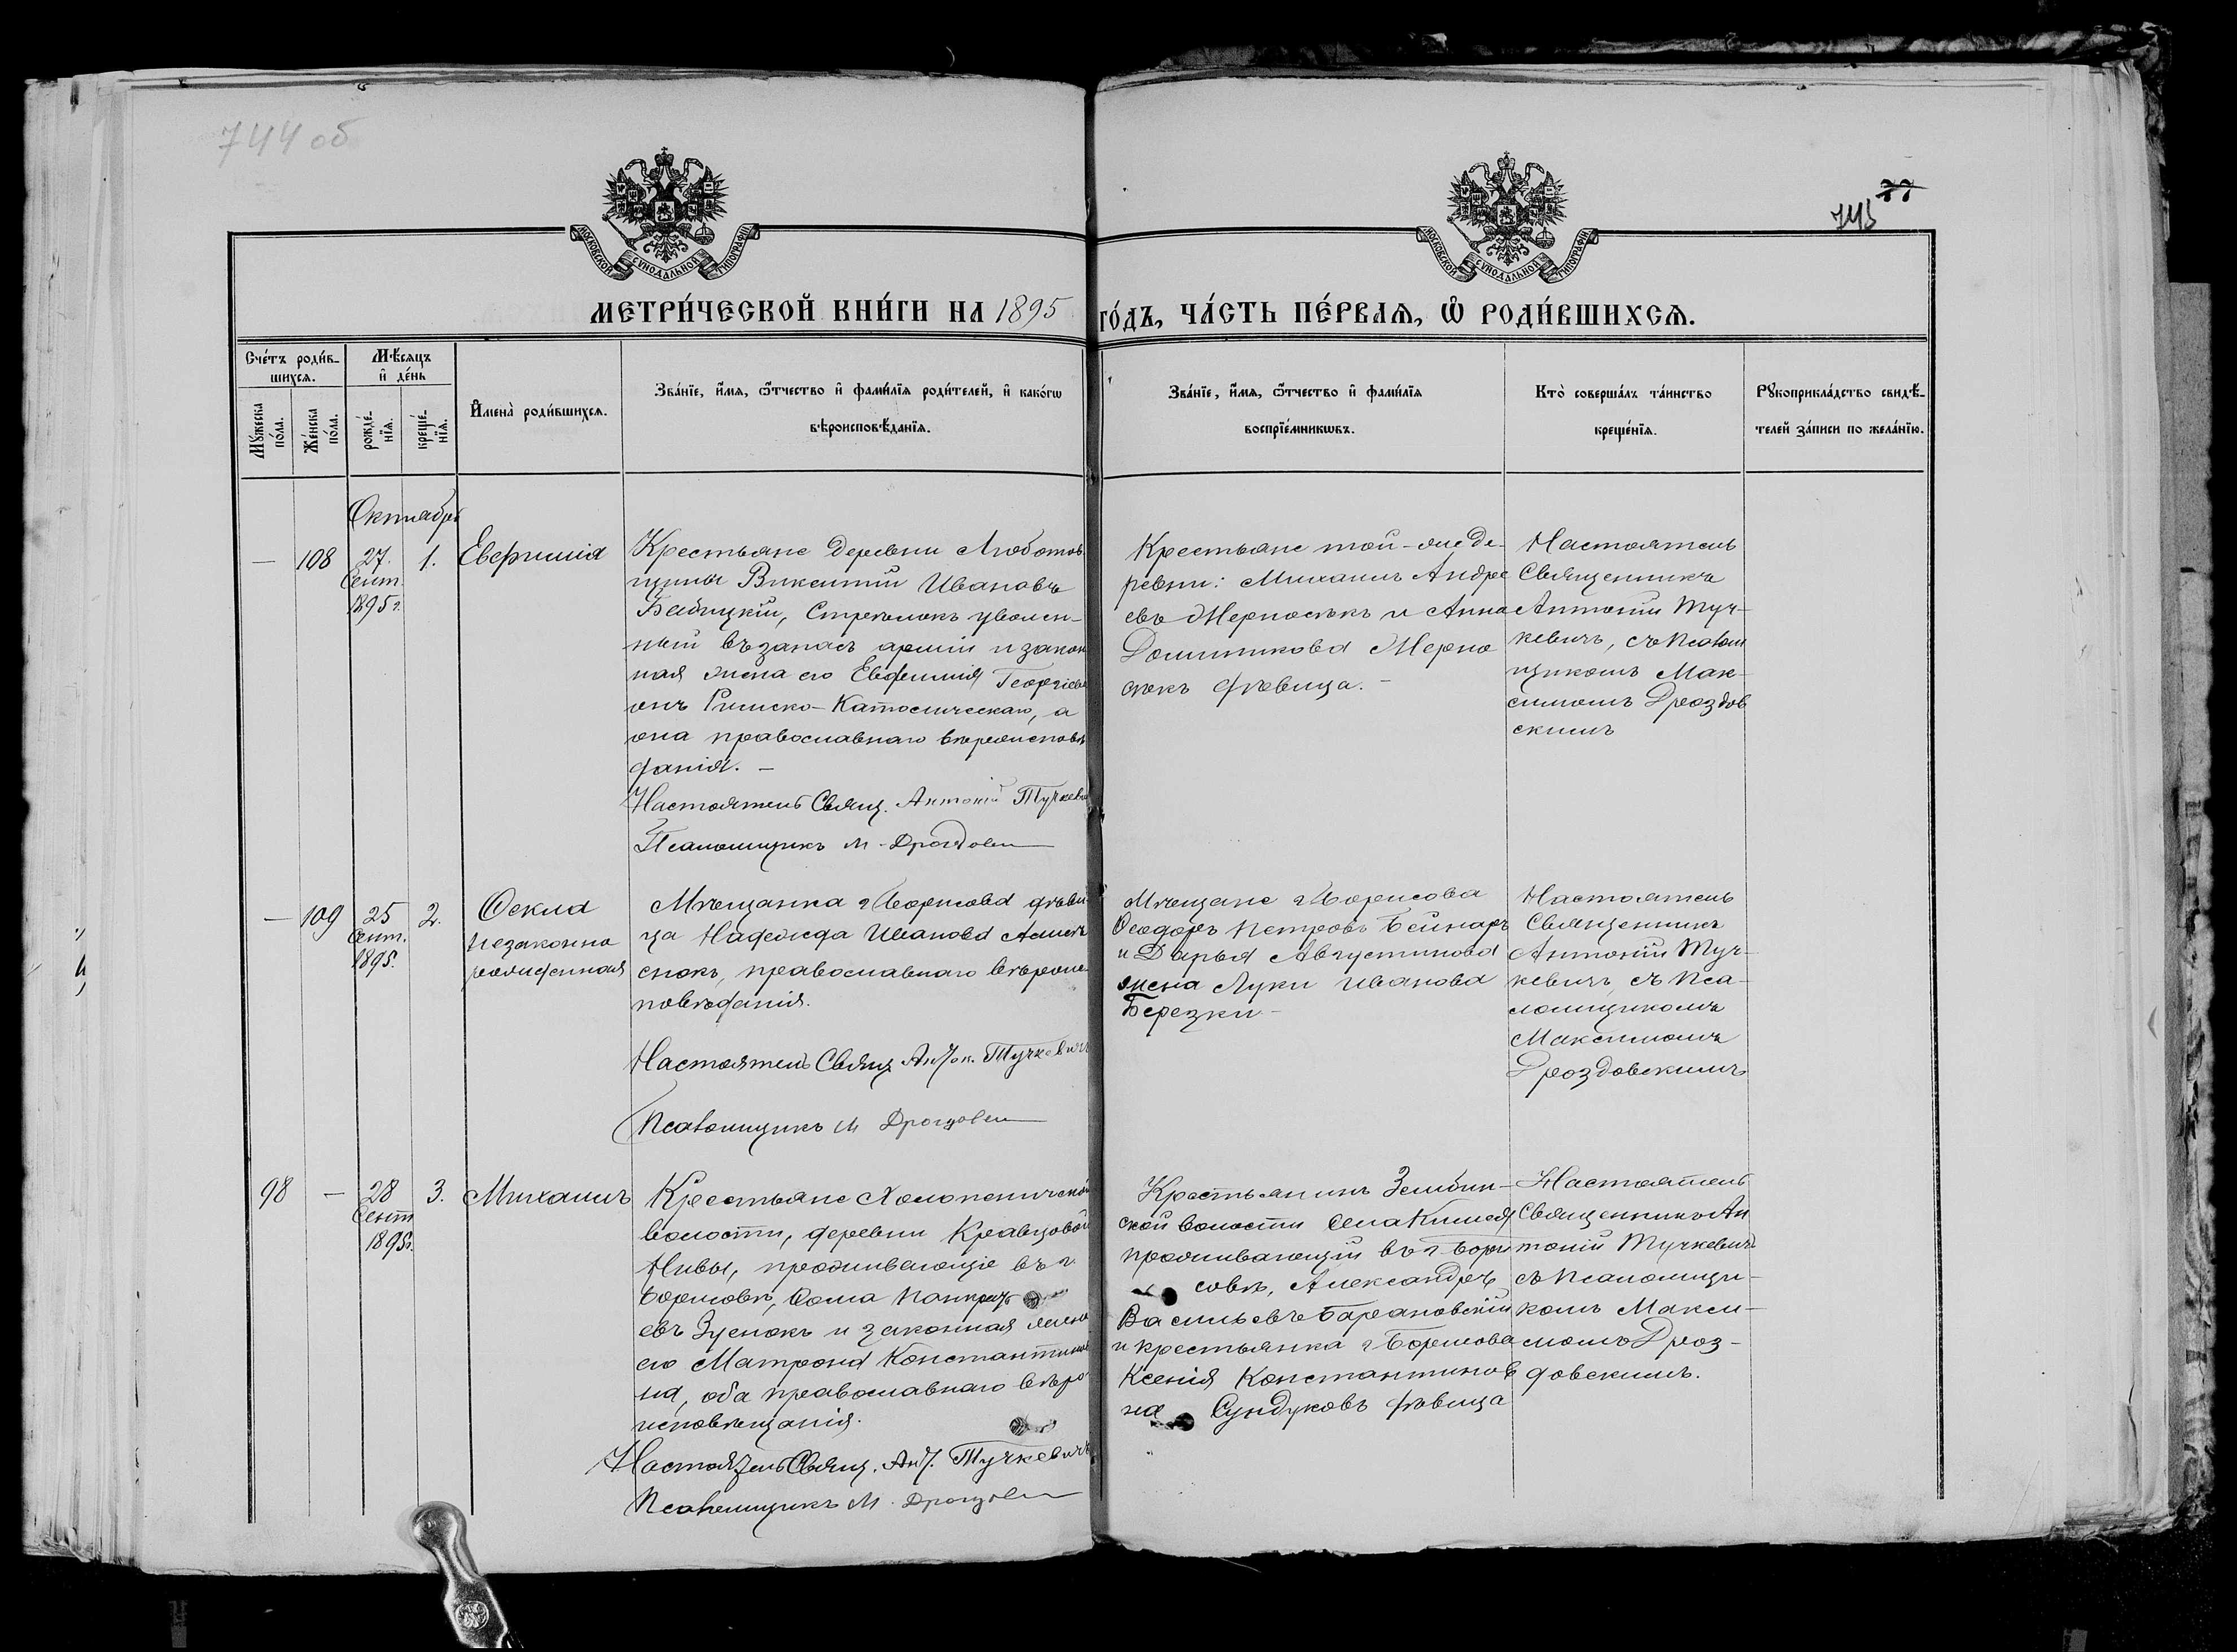 744 об
77
745
МОСКОВСКОЙ СУНОДАЛЬНОЙ ТИПОГРАФІИ
МОСКОВСКОЙ СУНОДАЛЬНОЙ ТИПОГРАФІИ
МЕТРИ́ЧЕСКОЙ КНИ́ГИ НА 1895
ГО́ДЪ, ЧА́СТЬ ПЕ́РВАѦ, Ѽ РОДИ́ВШИХСѦ.
Сче́тъ роди́в-
шихсѧ.
Мѣ́сѧцъ
и҆ де́нь
Мꙋжеска
по́ла.
Же́нска
по́ла.
рожде́-
нїѧ.
креще́-
нїѧ.
И҆мена̀ роди́вшихсѧ.
Зва́нїе, и҆́мѧ, ѻ҆́тчество и҆ фами́лїѧ роди́телей, и҆ како́гѡ
вѣроисповѣ́данїѧ.
Зва́нїе, и҆́мѧ, ѻ҆́тчество и҆ фами́лїѧ
воспрїе́мникѡвъ.
Кто̀ соверша́лъ та́инство
креще́нїѧ.
Рꙋкоприкла́дство свидѣ́-
телей за́писи по жела́нїю.
Октябрь
— 108 27. Сент. 1895 г. 1. Евфимія
Крестьяне деревни Любатов
щины Викентій Ивановъ
Бабицкій, Стрѣлокъ уволен-
ный въ запасъ арміи и закон
ная жена его Евфимия Георгіева
онъ Римско-Католическаго, а
она православнаго вѣроисповѣ
данія. —
Настоятель Свящ. Антоній Тучкевич
Псаломщикъ М. Дроздовск
Крестьяне той-же де-
ревни: Михаилъ Андре
евъ и Анна
Доминикова
дѣвица. —
Настоятель
Священникъ
Антоній Туч-
кевичъ, съ Псалом
щикомъ Мак-
симомъ Дроздов
скимъ
— 109 25 Сент. 1895. 2. Ѳекла
незаконно
рожденная
Мѣщанка г. Борисова дѣви
ца Надежда Иванова
православнаго вѣроис
повѣданія.
Настоятель Свящ. Антон. Тучкевичъ
Псаломщикъ М Дроздовск
Мѣщане г. Борисова
Ѳеодоръ Петровъ Бейнаръ
и Дарья Августинова
жена Луки Иванова
Березки —
Настоятель
Священникъ
Антоній Туч-
кевичъ, съ Пса-
ломщикомъ
Максимомъ
Дроздовскимъ
98 — 28 Сент 1895г. 3. Михаилъ
Крестьяне Холопеничской
волости, деревни Кравцовой
Нивы, проживающіе въ г.
Борисовѣ, Ѳома Панкрать
евъ Зуенокъ и законная жена
его Матрона Константинов
на, оба православнаго вѣро
исповѣданія.
Настоятель Свящ. Ант. Тучкевичъ
Псаломщикъ М. Дроздовск
Крестьянинъ Зембин-
ской волости села
проживающій въ г. Бори
совѣ, Александръ
Васильевъ Барановскій
и крестьянка г. Борисова
Ксенія Константинов
на Сундуковъ дѣвица
Настоятель
Священникъ Ан
тоній Тучкевичъ
съ Псаломщи-
комъ Макси-
момъ Дроз-
довскимъ.